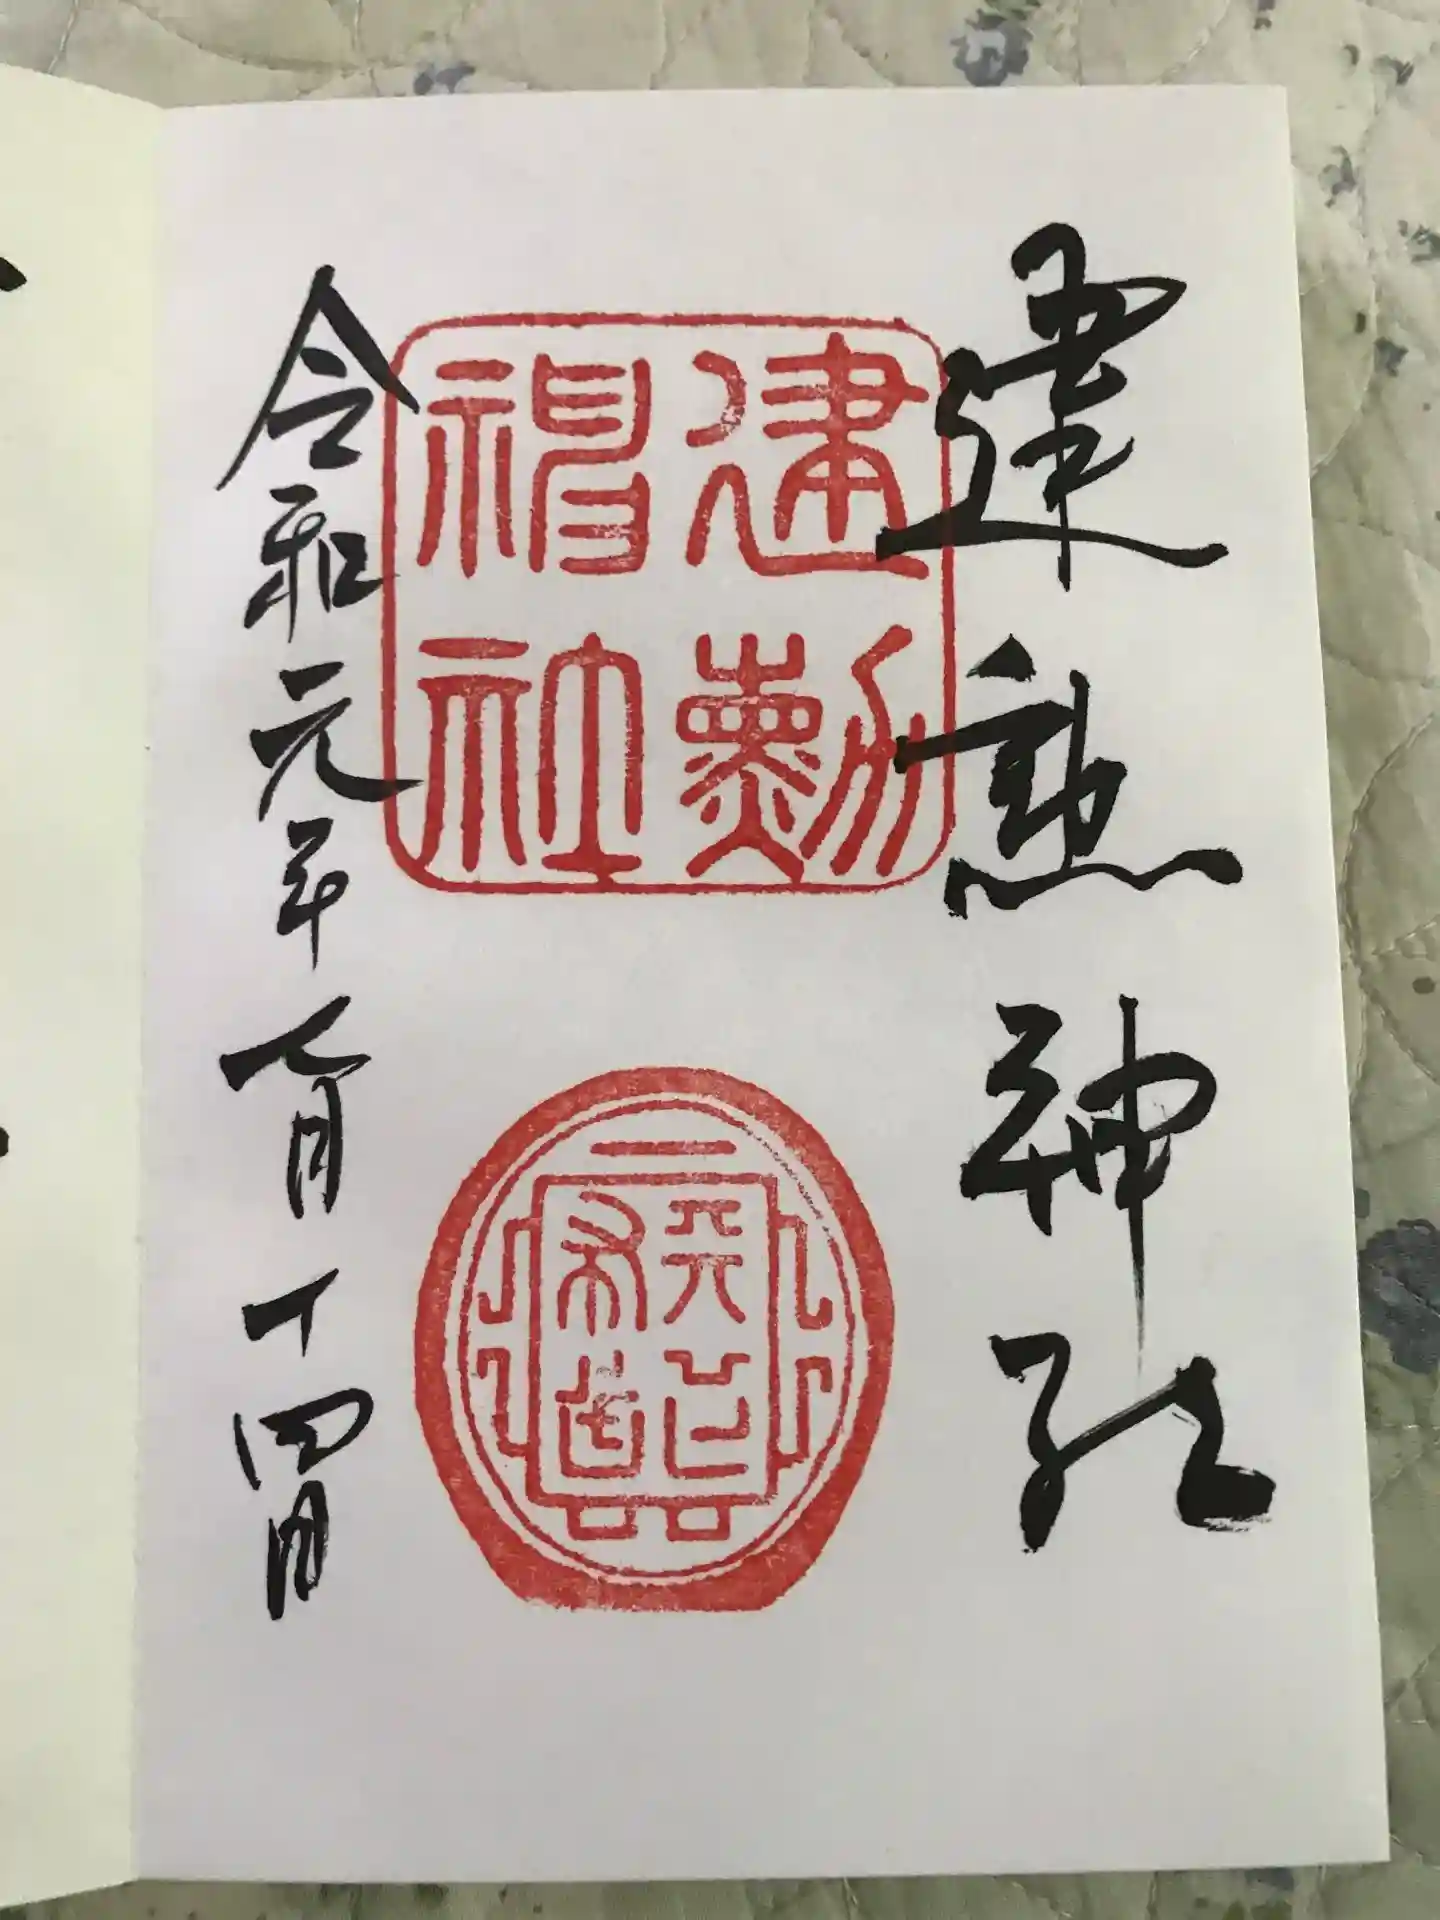 建勲神社
建勲
神社
天下
布武
令和元年七月十四日